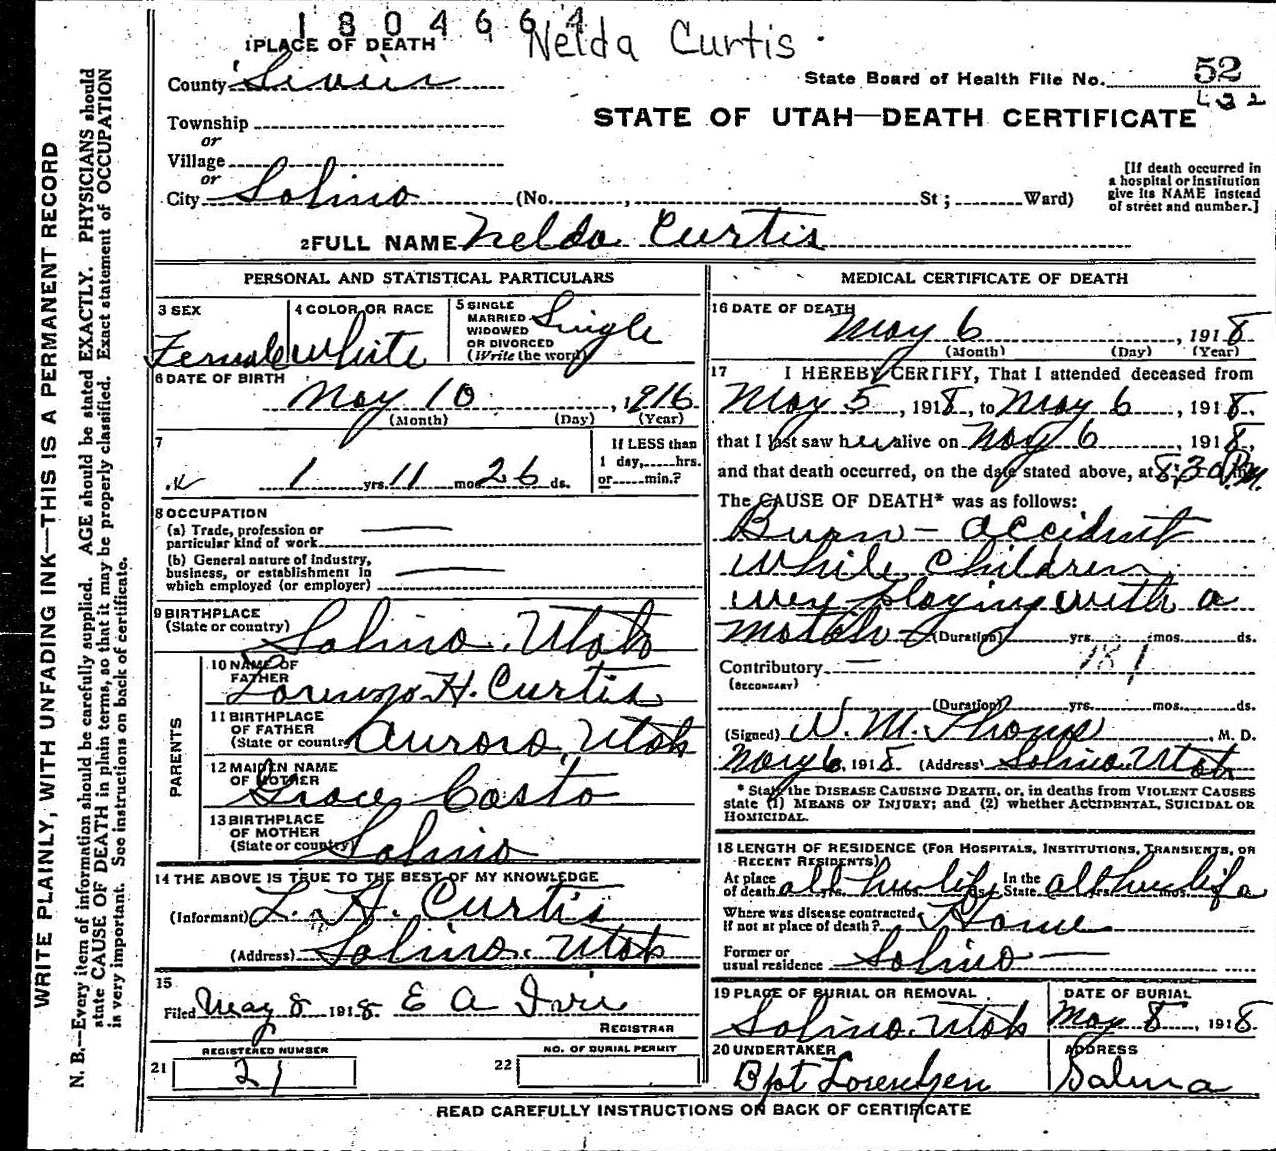 1804664
Nelda Curtis.
1 PLACE OF DEATH
County Sevier
State Board of Health File No. 52
432
STATE OF UTAH—DEATH CERTIFICATE
Township
or
Village
or
City Salina (No. , St; Ward)
[If death occurred in
a hospital or institution
give its NAME instead
of street and number.]
2 FULL NAME Nelda Curtis
PERSONAL AND STATISTICAL PARTICULARS
3 SEX Female
4 COLOR OR RACE White
5 SINGLE
MARRIED
WIDOWED
OR DIVORCED
(Write the word) Single
6 DATE OF BIRTH May 10, 1916
(Month) (Day) (Year)
7 1 yrs. 11 mos 26 ds.
If LESS than
1 day, hrs.
or min.?
8 OCCUPATION
(a) Trade, profession or
particular kind of work —
(b) General nature of industry,
business, or establishment in
which employed (or employer) —
9 BIRTHPLACE
(State or country) Salina. Utah
PARENTS
10 NAME OF
FATHER Lorenzo H. Curtis
11 BIRTHPLACE
OF FATHER
(State or country) Aurora, Utah
12 MAIDEN NAME
OF MOTHER Grace Casto
13 BIRTHPLACE
OF MOTHER
(State or country) Salina
14 THE ABOVE IS TRUE TO THE BEST OF MY KNOWLEDGE
(Informant) L. H. Curtis
(Address) Salina. Utah
15
Filed May 8 1918. E A
REGISTRAR
REGISTERED NUMBER
21 21
NO. OF BURIAL PERMIT
22
MEDICAL CERTIFICATE OF DEATH
16 DATE OF DEATH
May 6, 1918
(Month) (Day) (Year)
17 I HEREBY CERTIFY, That I attended deceased from
May 5, 1918, to May 6, 1918,
that I last saw her alive on May 6, 1918,
and that death occurred, on the date stated above, at 8:30 P.m.
The CAUSE OF DEATH* was as follows:
Burn - accident
While Children
were playing with a
match - (Duration) yrs. mos. ds.
Contributory — 181
(SECONDARY)
(Duration) yrs. mos. ds.
(Signed) N. M. , M. D.
May 6, 1918 (Address) Salina. Utah
* State the DISEASE CAUSING DEATH, or, in deaths from VIOLENT CAUSES
state (1) MEANS OF INJURY; and (2) whether ACCIDENTAL, SUICIDAL OR
HOMICIDAL.
18 LENGTH OF RESIDENCE (FOR HOSPITALS, INSTITUTIONS, TRANSIENTS, OR
RECENT RESIDENTS)
At place
of death all her life In the
State all her life
Where was disease contracted,
If not at place of death? Home
Former or
usual residence Salina —
19 PLACE OF BURIAL OR REMOVAL
Salina. Utah
DATE OF BURIAL
May 8, 1918
20 UNDERTAKER
Lorentzen
ADDRESS
Salina
READ CAREFULLY INSTRUCTIONS ON BACK OF CERTIFICATE
WRITE PLAINLY, WITH UNFADING INK—THIS IS A PERMANENT RECORD
N. B.—Every item of information should be carefully supplied. AGE should be stated EXACTLY. PHYSICIANS should
state CAUSE OF DEATH in plain terms, so that it may be properly classified. Exact statement of OCCUPATION
is very important. See instructions on back of certificate.